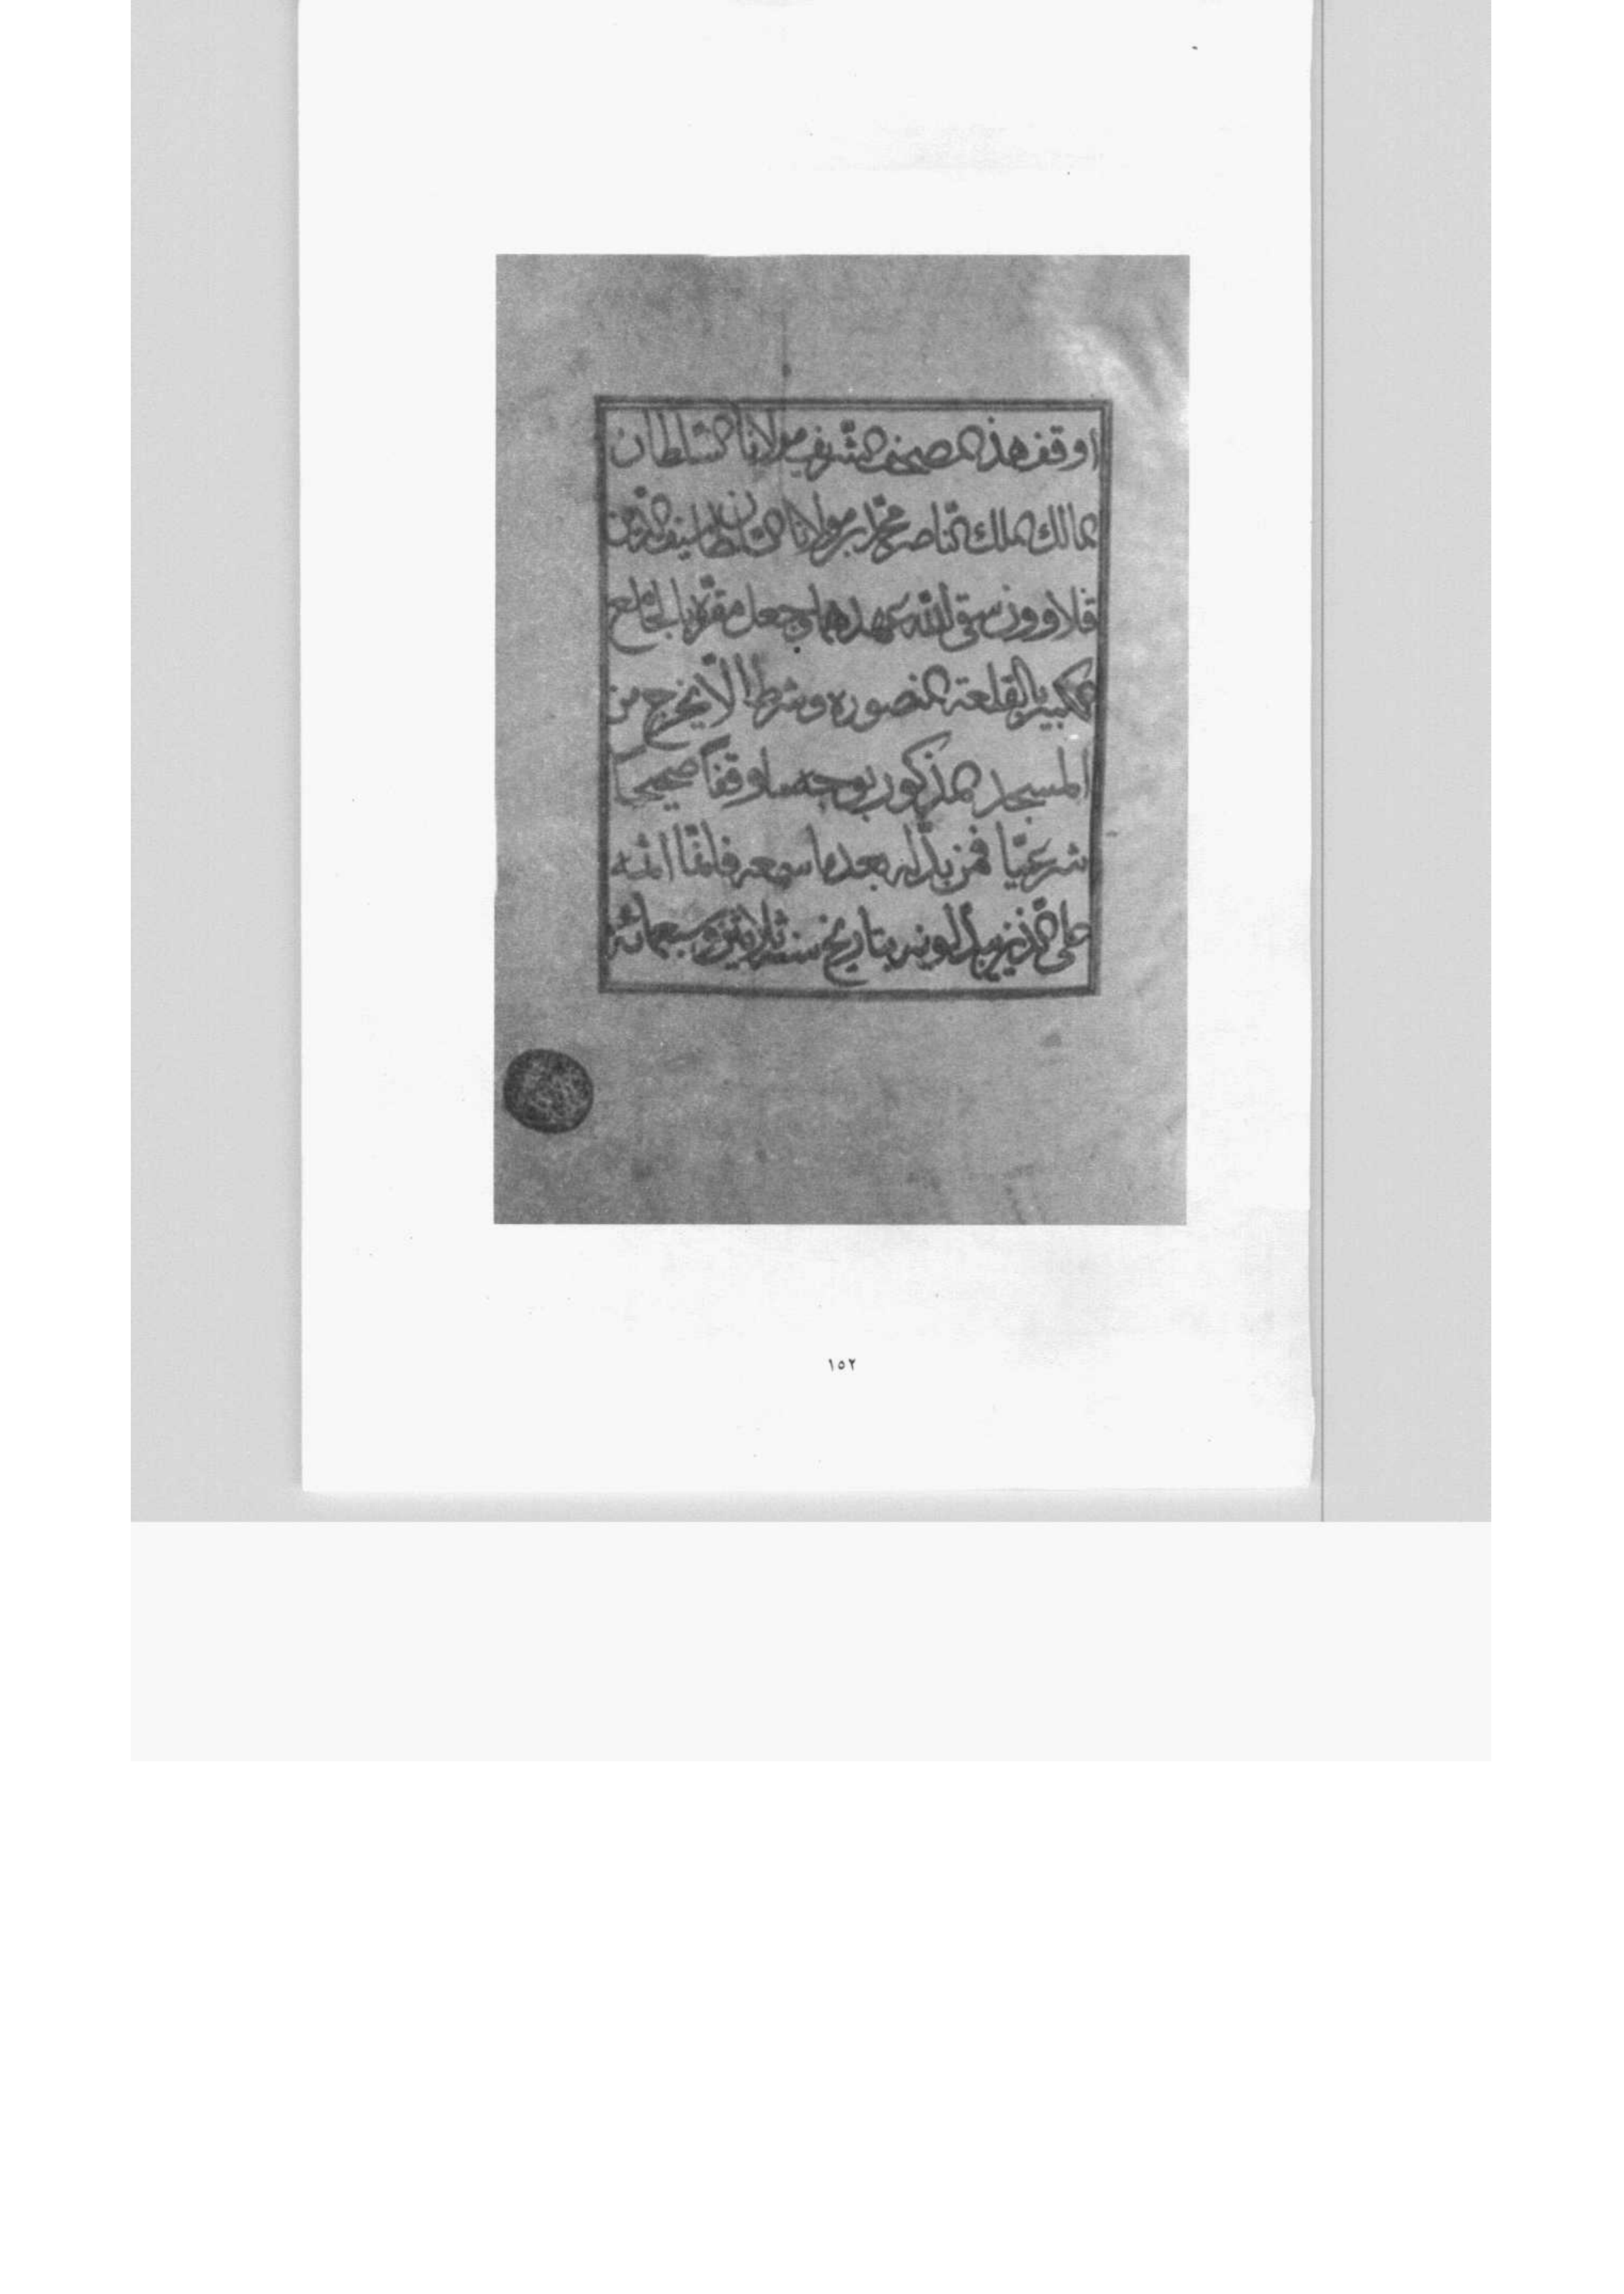 اوقف هذا المصحف الشّريف مولانا السّلطان
المالك الملك النّاصر محمّد ابن مولانا السّلطان سيف الدّين
قلاوون سقى اللّه عهدهما وجعل مقرّه بالجامع
الكبير بالقلعة المنصوره وشرط الّا يخرج من
المسجد المذكور بوجه ما وقفاً صحيحاً
شرعيّا فمن بدّله بعد ما سمعه فانمّا اثمه
على الّذين يبدّلونه بتاريخ سنة ثلاثين وسبعمائة
١٥٢